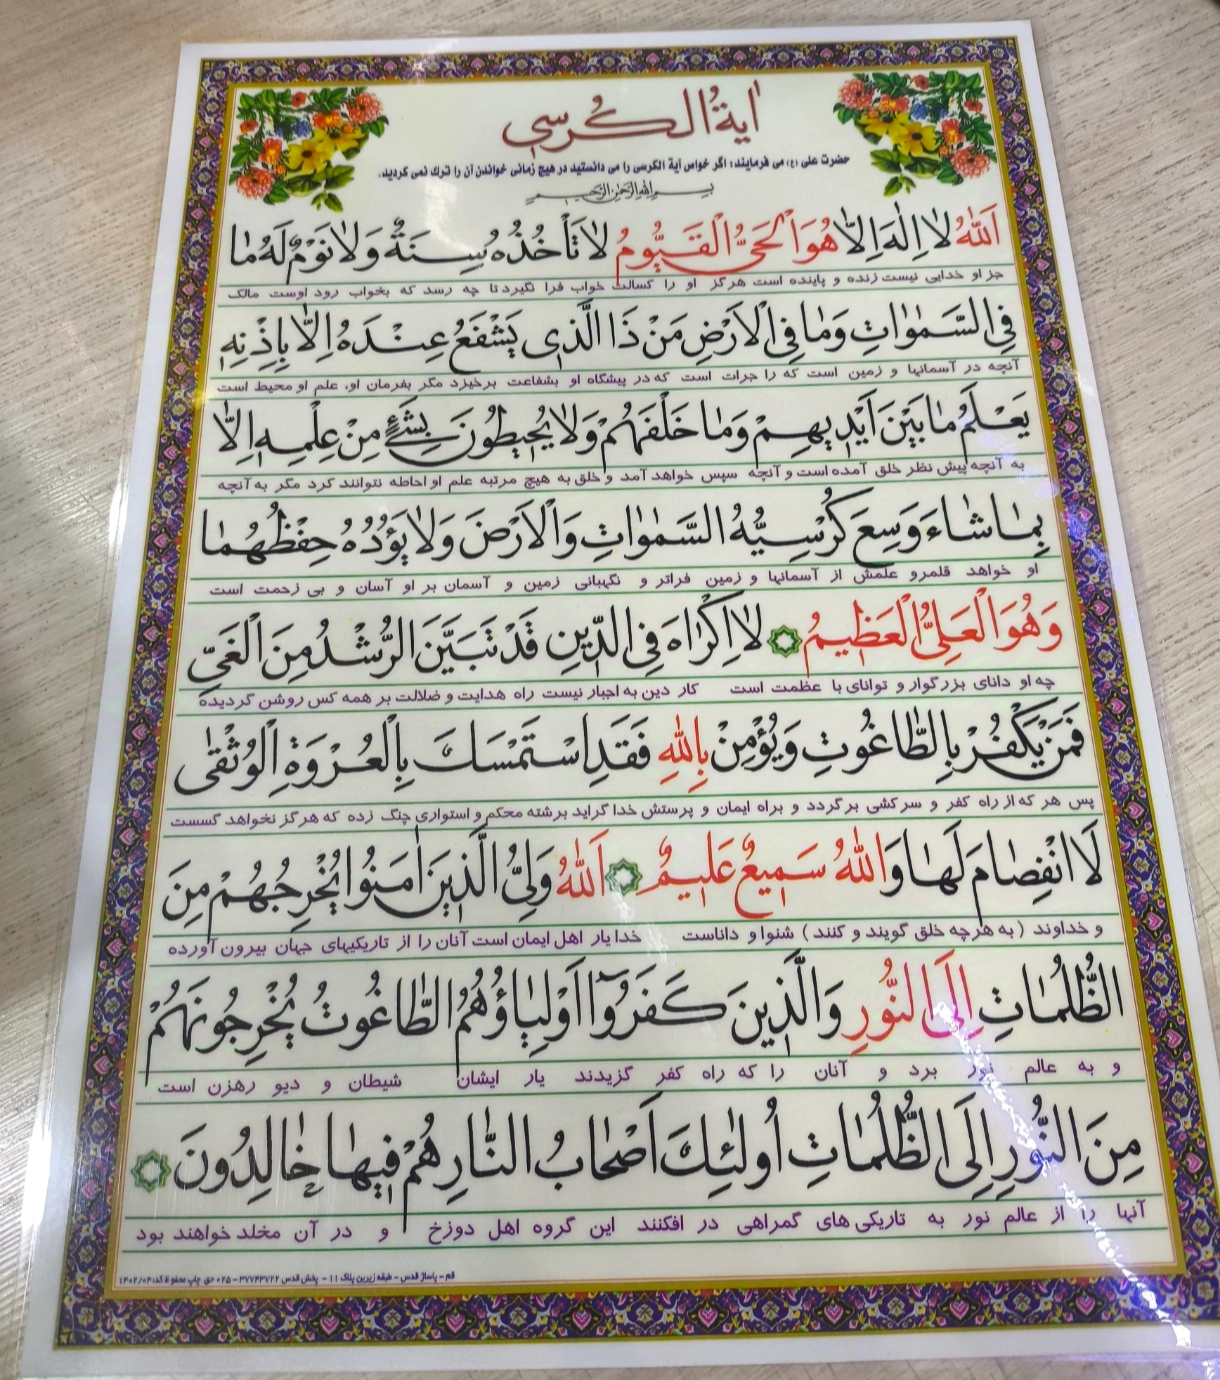 اٰیةُ الکُرسی
حضرت علی (ع) می فرمایند: اگر خواس آیة الکرسی را می دانستید در هیچ زمانی خواندن آن را ترك نمی گردید.
بِسْمِ اللهِ الرَّحْمٰنِ الرَّحیمِ
اَللهُ لا اِلٰهَ اِلاّٰ هُوَ الْحَیُّ الْقَیُّومُ لا تَأْخُذُهُ سِنَةٌ وَلا نَوْمٌ لَهُ مٰا
جز او خدایی نیست زنده و پاینده است هرگز او را کسالت خواب فرا نگیرد تا چه رسد که بخواب رود اوست مالک
فِی السَّمٰوٰاتِ وَمٰا فِی الْاَرْضِ مَنْ ذَا الَّذی یَشْفَعُ عِنْدَهُ اِلاّٰ بِاِذْنِهِ
آنچه در آسمانها و زمین است که را جرات است که در پیشگاه او بشفاعت برخیزد مگر بفرمان او. علم او محیط است
یَعْلَمُ مٰا بَیْنَ اَیْدیهِمْ وَمٰا خَلْفَهُمْ وَلا یُحیطُونَ بِشَیْءٍ مِنْ عِلْمِهِ اِلاّٰ
به آنچه پیش نظر خلق آمده است و آنچه سپس خواهد آمد و خلق به هیچ مرتبه علم او احاطه نتوانند کرد مگر به آنچه
بِمٰا شٰاءَ وَسِعَ کُرْسِیُّهُ السَّمٰوٰاتِ وَالْاَرْضَ وَلا یَؤُدُهُ حِفْظُهُمٰا
او خواهد قلمرو علمش از آسمانها و زمین فراتر و نگهبانی زمین و آسمان بر او آسان و بی زحمت است
وَهُوَ الْعَلِیُّ الْعَظیمُ لا اِکْرٰاهَ فِی الدّینِ قَدْ تَبَیَّنَ الرُّشْدُ مِنَ الْغَیِّ
چه او دانای بزرگوار و توانای با عظمت است کار دین به اجبار نیست راه هدایت و ضلالت بر همه کس روشن گردیده
فَمَنْ یَکْفُرْ بِالطّٰاغُوتِ وَیُؤْمِنْ بِاللهِ فَقَدِ اسْتَمْسَكَ بِالْعُرْوَةِ الْوُثْقٰی
پس هر که از راه کفر و سرکشی برگردد و براه ایمان و پرستش خدا گراید برشته محکم و استواری چنگ زده که هرگز نخواهد گسست
لَا انْفِصٰامَ لَهٰا وَاللهُ سَمیعٌ عَلیمٌ اَللهُ وَلِیُّ الَّذینَ اٰمَنُوا یُخْرِجُهُمْ مِنَ
و خداوند ( به هرچه خلق گویند و کنند ) شنوا و داناست خدا یار اهل ایمان است آنان را از تاریکیهای جهان بیرون آورده
الظُّلُمٰاتِ اِلَی النُّورِ وَالَّذینَ کَفَرُوٓا اَوْلِیٰاؤُهُمُ الطّٰاغُوتُ یُخْرِجُونَهُمْ
و به عالم نور برد و آنان را که راه کفر گزیدند یار ایشان شیطان و دیو رهزن است
مِنَ النُّورِ اِلَی الظُّلُمٰاتِ اُولٰئِكَ اَصْحٰابُ النّٰارِ هُمْ فیهٰا خٰالِدُونَ
آنها را از عالم نور به تاریکی های گمراهی در افکنند این گروه اهل دوزخ و در آن مخلد خواهند بود
قم - پاساژ قدس - طبقه زیرین پلاک ۱۱ - پخش قدس ۳۷۷۴۳۷۲۲ - ۰۲۵ حق چاپ محفوظ کد: ۱۴۰۲/۰۴